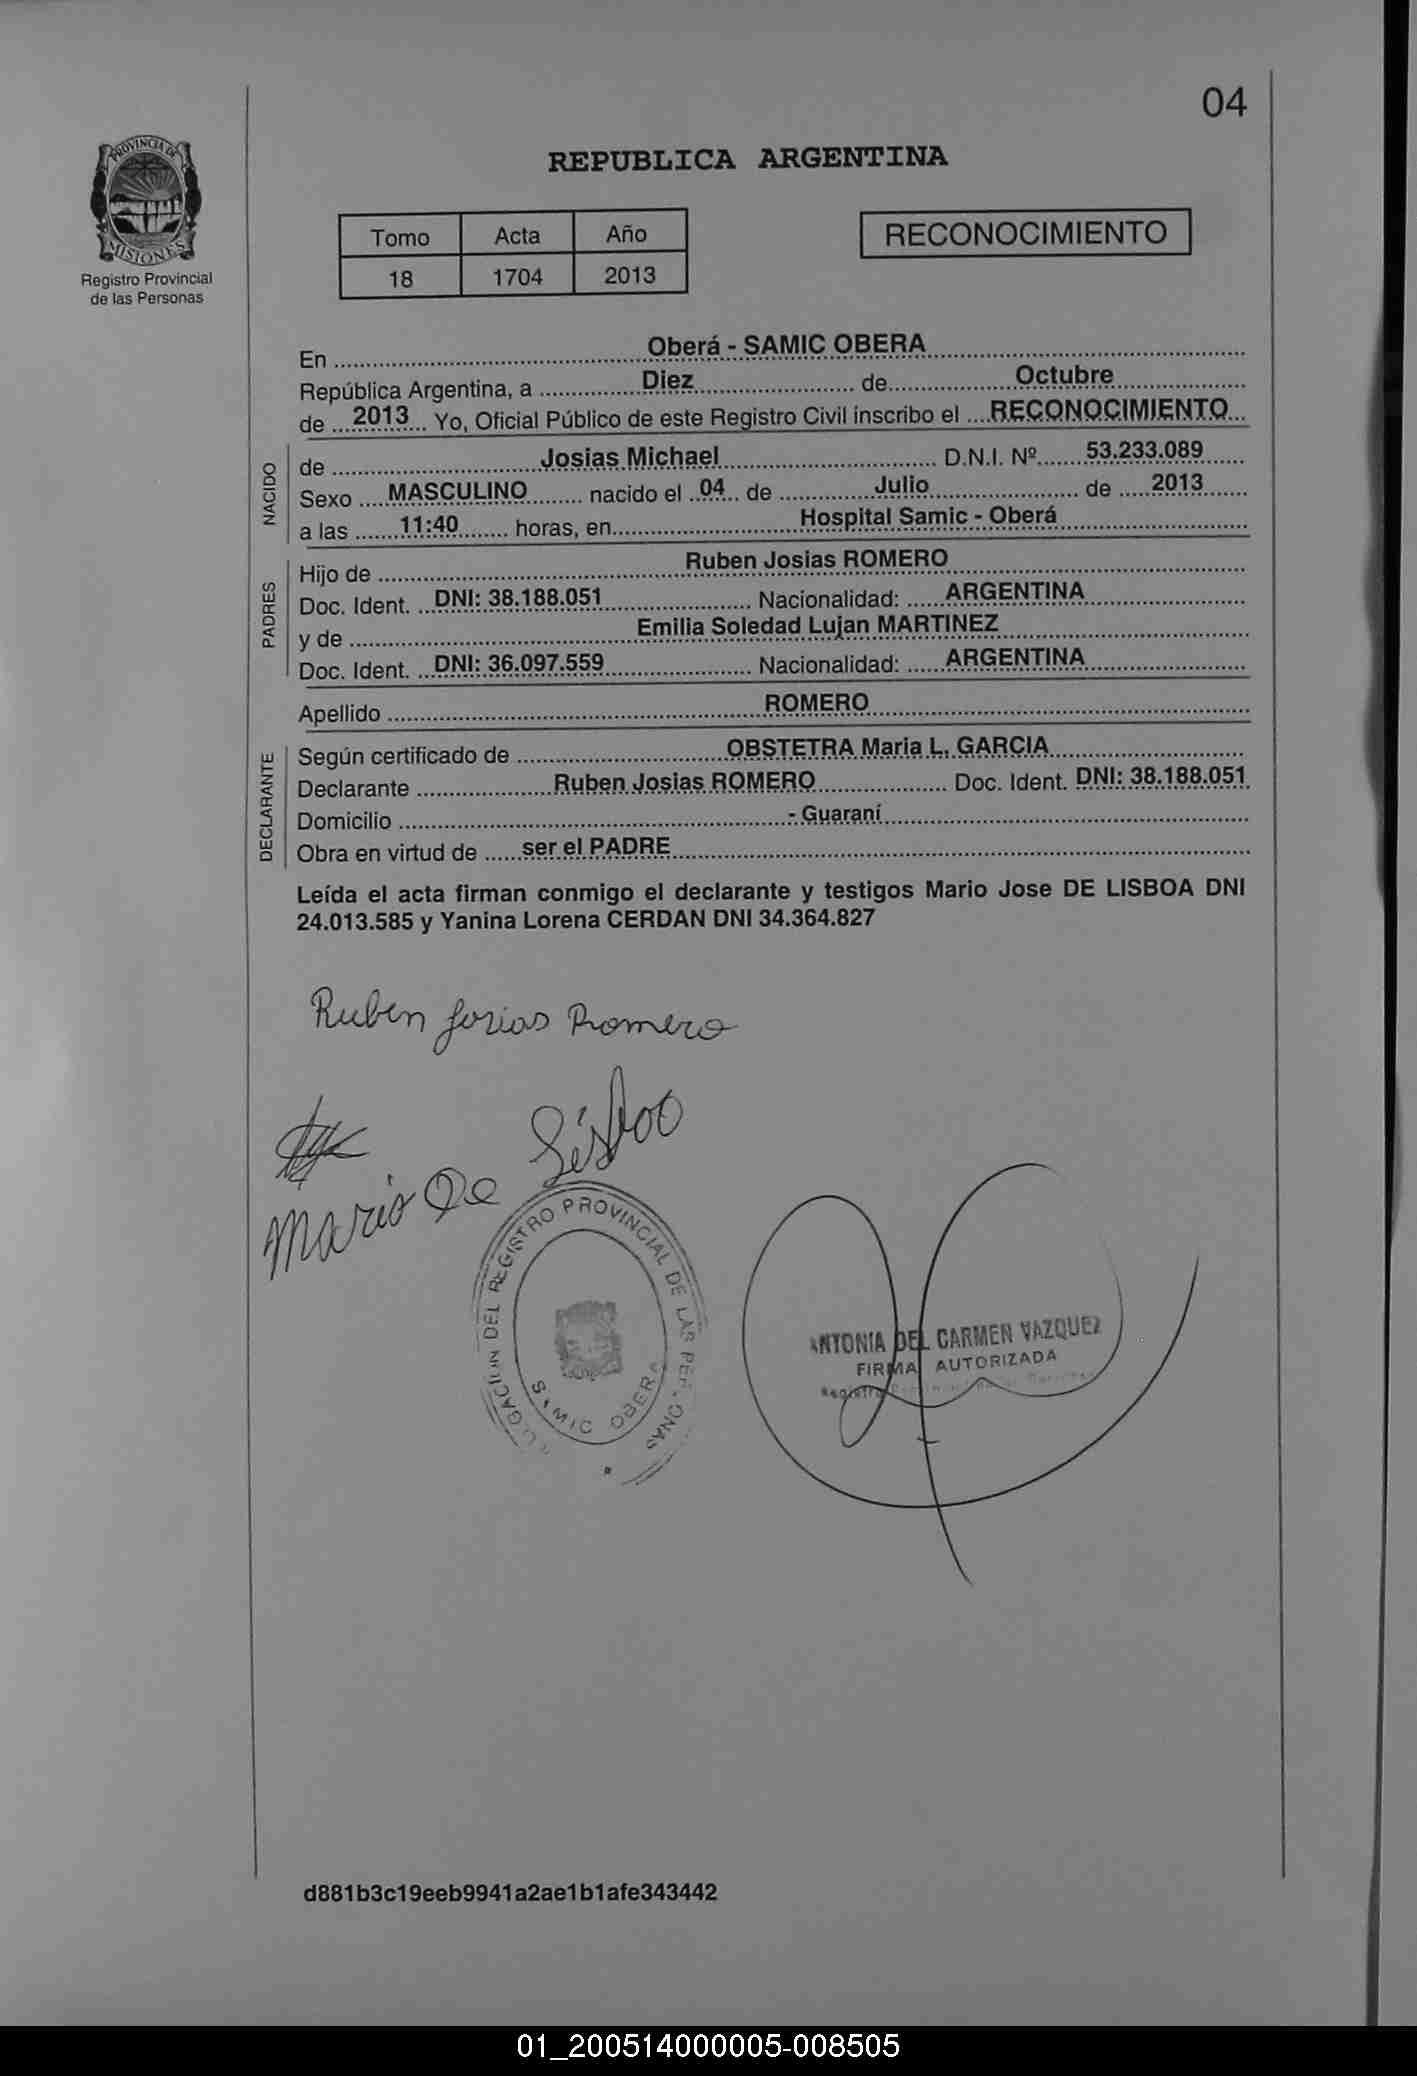 04
PROVINCIA DE
MISIONES
Registro Provincial
de las Personas
REPUBLICA ARGENTINA
Tomo Acta Año
18 1704 2013
RECONOCIMIENTO
En Oberá - SAMIC OBERA
República Argentina, a Diez de Octubre
de 2013 Yo, Oficial Público de este Registro Civil inscribo el RECONOCIMIENTO
NACIDO
de Josias Michael D.N.I. Nº 53.233.089
Sexo MASCULINO nacido el 04 de Julio de 2013
a las 11:40 horas, en Hospital Samic - Oberá
PADRES
Hijo de Ruben Josias ROMERO
Doc. Ident. DNI: 38.188.051 Nacionalidad: ARGENTINA
y de Emilia Soledad Lujan MARTINEZ
Doc. Ident. DNI: 36.097.559 Nacionalidad: ARGENTINA
Apellido ROMERO
DECLARANTE
Según certificado de OBSTETRA Maria L. GARCIA
Declarante Ruben Josias ROMERO Doc. Ident. DNI: 38.188.051
Domicilio - Guaraní
Obra en virtud de ser el PADRE
Leída el acta firman conmigo el declarante y testigos Mario Jose DE LISBOA DNI
24.013.585 y Yanina Lorena CERDAN DNI 34.364.827
Ruben Josias Romero
Mario De Lisboa
DEL REGISTRO PROVINCIAL DE LAS PERSONAS
SAMIC OBERA
ANTONIA DEL CARMEN VAZQUEZ
FIRMA AUTORIZADA
Registro
d881b3c19eeb9941a2ae1b1afe343442
01_200514000005-008505